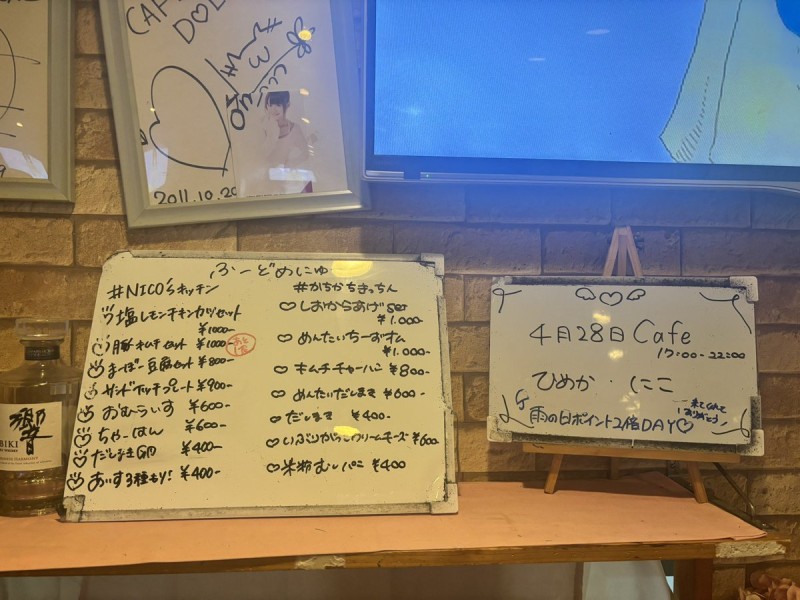 2011.10.20
ふーどめにゅ
#NICO'sキッチン
塩レモンチキンカツセット
¥1000-
豚キムチセット ¥1000-
まーぼー豆腐セット ¥800-
サンドイッチプレート ¥900-
おむらいす ¥600-
ちゃーはん ¥600-
だしまき卵 ¥400-
あいす3種もり! ¥400-
#かちかちきっちん
しおからあげset
¥1.000-
めんたいちーずオム
¥1.000-
キムチチャーハン ¥800-
めんたいだしまき ¥600-
だしまき ¥400-
いぶりがっこクリームチーズ ¥600
米粉むしパン ¥400
響
4月28日 Cafe
17:00-22:00
ひめか・にこ
来てくれて
ありがとう
雨の日ポイント2倍DAY♡